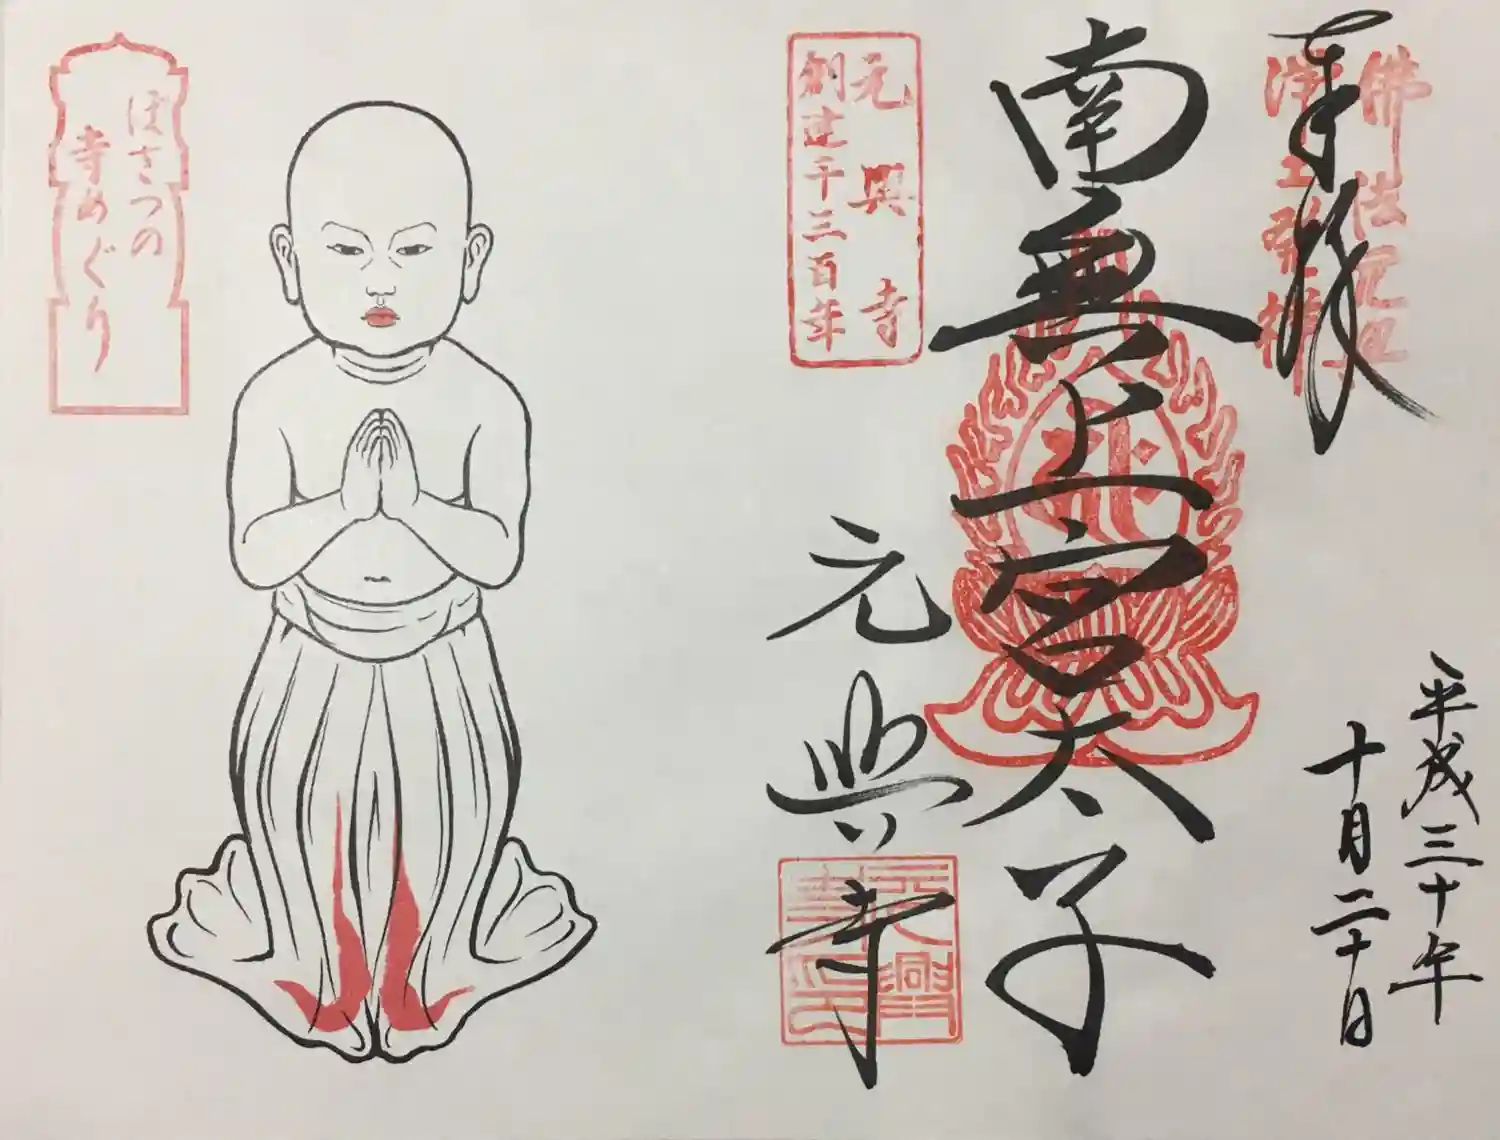 奉拝
佛法元興
淨土發祥
平成三十年
十月二十日
南無上宮太子
元興寺
創建千三百年
元興寺
ぼさつの
寺めぐり